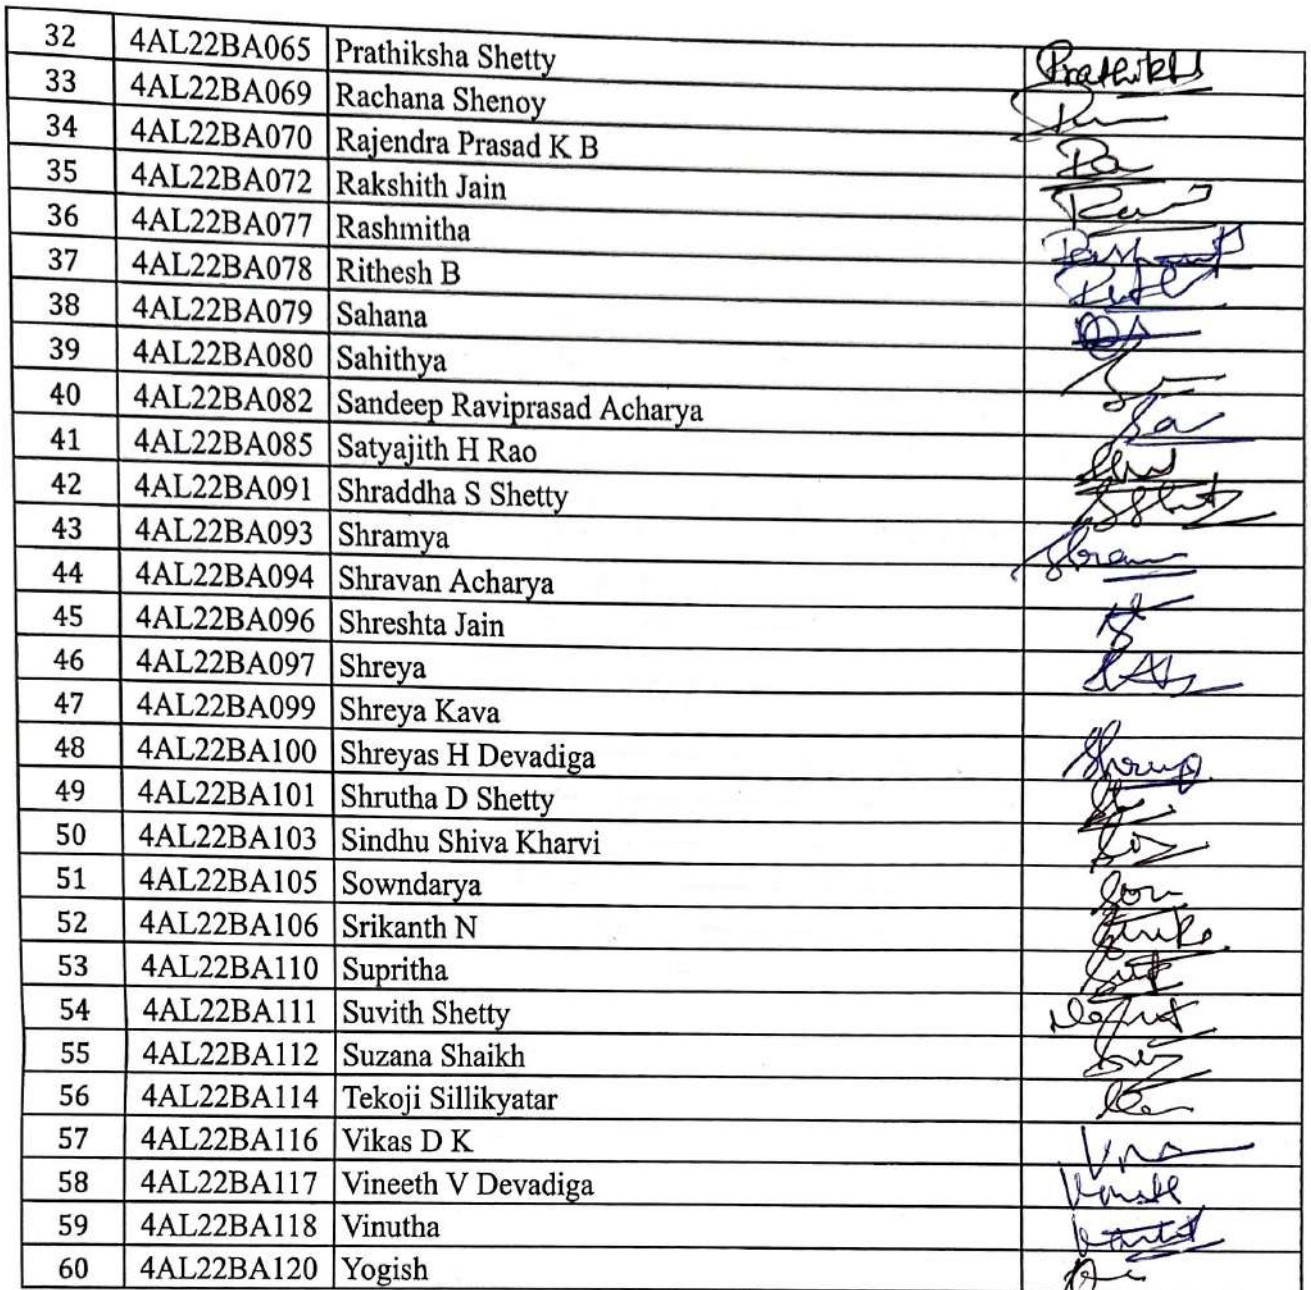 32 4AL22BA065 Prathiksha Shetty
33 4AL22BA069 Rachana Shenoy
34 4AL22BA070 Rajendra Prasad K B
35 4AL22BA072 Rakshith Jain
36 4AL22BA077 Rashmitha
37 4AL22BA078 Rithesh B
38 4AL22BA079 Sahana
39 4AL22BA080 Sahithya
40 4AL22BA082 Sandeep Raviprasad Acharya
41 4AL22BA085 Satyajith H Rao
42 4AL22BA091 Shraddha S Shetty
43 4AL22BA093 Shramya
44 4AL22BA094 Shravan Acharya
45 4AL22BA096 Shreshta Jain
46 4AL22BA097 Shreya
47 4AL22BA099 Shreya Kava
48 4AL22BA100 Shreyas H Devadiga
49 4AL22BA101 Shrutha D Shetty
50 4AL22BA103 Sindhu Shiva Kharvi
51 4AL22BA105 Sowndarya
52 4AL22BA106 Srikanth N
53 4AL22BA110 Supritha
54 4AL22BA111 Suvith Shetty
55 4AL22BA112 Suzana Shaikh
56 4AL22BA114 Tekoji Sillikyatar
57 4AL22BA116 Vikas D K
58 4AL22BA117 Vineeth V Devadiga
59 4AL22BA118 Vinutha
60 4AL22BA120 Yogish